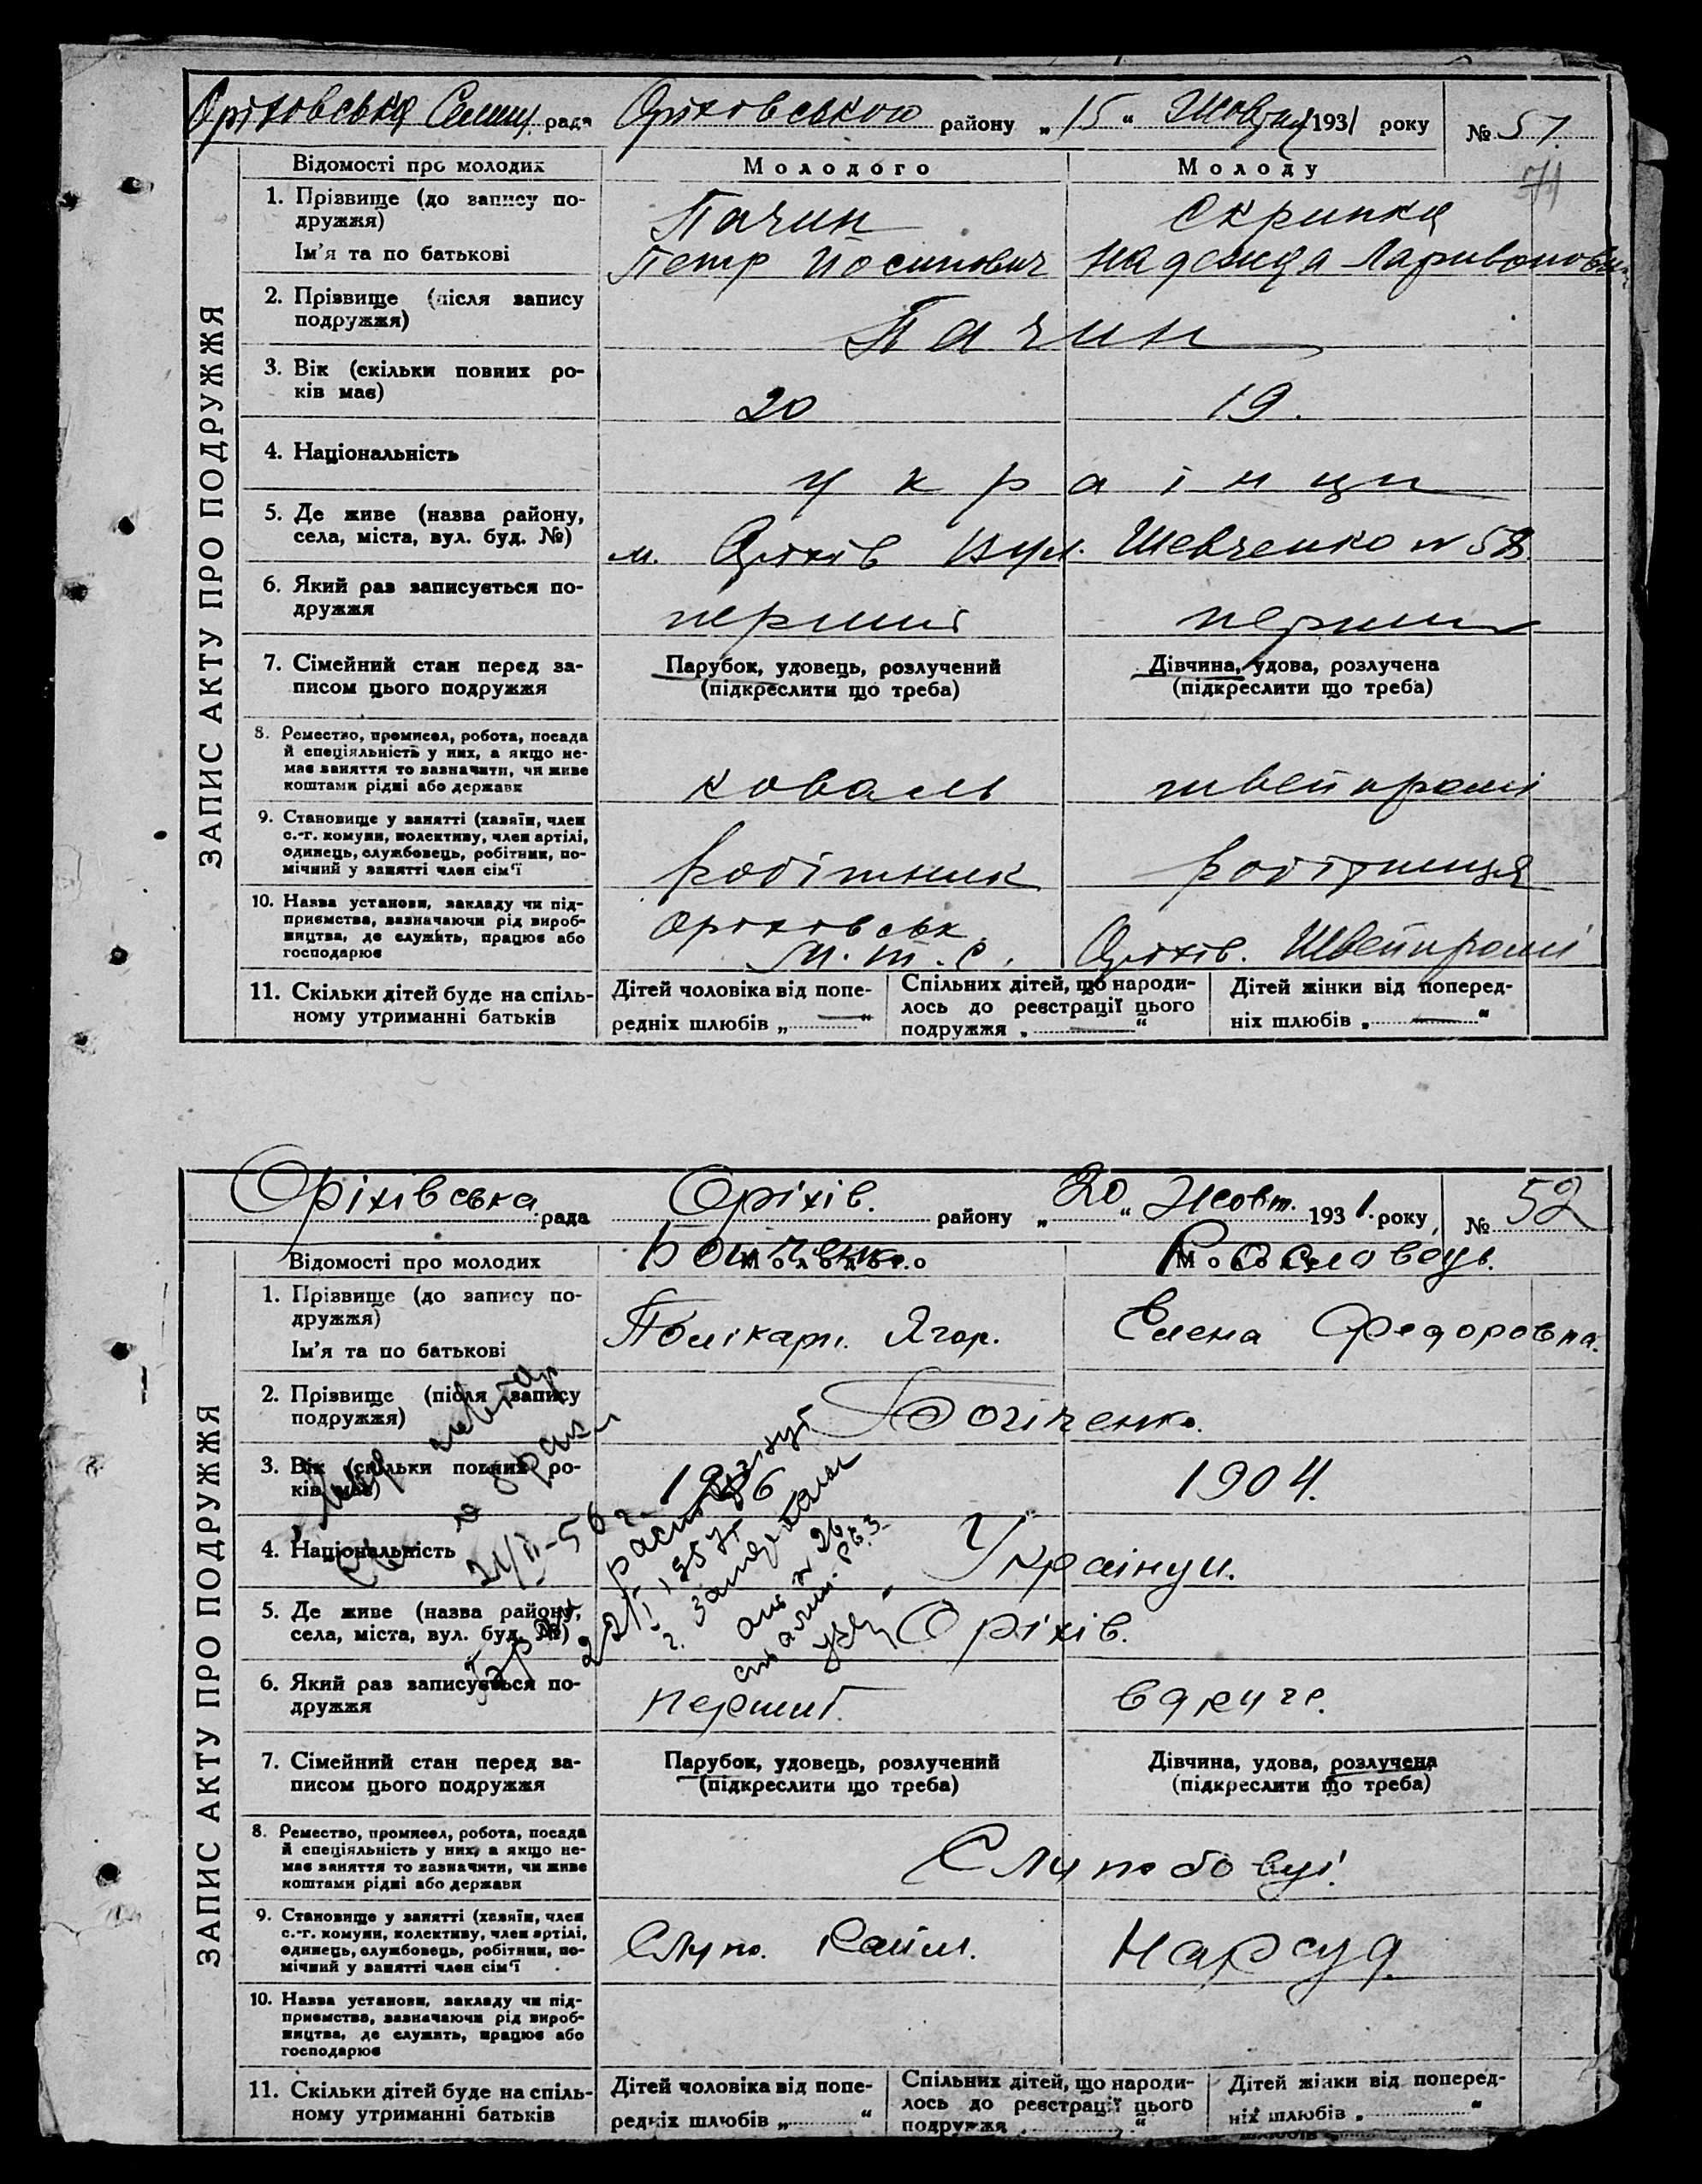 Оріховська Селищ. рада Оріховського району „15“ Жовтня 1931 року № 51.
74
ЗАПИС АКТУ ПРО ПОДРУЖЖЯ
Відомості про молодих Молодого Молоду
1. Прізвище (до запису по-
дружжя) Пачин Скрипка
Ім'я та по батькові Петр Йосипович Надежда Ларивоновн
2. Прізвище (після запису
подружжя) Пачин
3. Вік (скільки повних ро-
ків має) 20 19.
4. Національність українци
5. Де живе (назва району,
села, міста, вул. буд. №) м. Оріхів вул. Шевченко № 58
6. Який раз записується по-
дружжя перший перший
7. Сімейний стан перед за-
писом цього подружжя
Парубок, удовець, розлучений
(підкреслити що треба)
Дівчина, удова, розлучена
(підкреслити що треба)
8. Ремество, промисел, робота, посада
й спеціяльність у них, а якщо не-
має заняття то зазначити, чи живе
коштами рідні або держави коваль швейпромі
9. Становище у занятті (хазяїн, член
с.-г. комуни, колективу, член артілі,
одинець, службовець, робітник, по-
мічний у занятті член сім'ї робітник робітниця
10. Назва установи, закладу чи під-
приємства, зазначаючи рід вироб-
ництва, де служить, працює або
господарює Оріховськ. М.Т.С. Оріхів. Швейпромі
11. Скільки дітей буде на спіль-
ному утриманні батьків
Дітей чоловіка від попе-
редніх шлюбів „—“
Спільних дітей, що народи-
лось до реєстрації цього
подружжя „—“
Дітей жінки від поперед-
ніх шлюбів „—“
Оріхівська рада Оріхів. району „20“ Жовт. 1931. року, № 52
ЗАПИС АКТУ ПРО ПОДРУЖЖЯ
Відомості про молодих Молодого Молоду
1. Прізвище (до запису по-
дружжя)
Ім'я та по батькові Полікарп. Ягор. Елена Федоровна.
2. Прізвище (після запису
подружжя)
3. Вік (скільки повних ро-
ків має) 1906 1904.
4. Національність Українци.
5. Де живе (назва району,
села, міста, вул. буд. №) Оріхів.
6. Який раз записується по-
дружжя перший. вдруге.
7. Сімейний стан перед за-
писом цього подружжя
Парубок, удовець, розлучений
(підкреслити що треба)
Дівчина, удова, розлучена
(підкреслити що треба)
8. Ремество, промисел, робота, посада
й спеціяльність у них, а якщо не-
має заняття то зазначити, чи живе
коштами рідні або держави Службовці.
9. Становище у занятті (хазяїн, член
с.-г. комуни, колективу, член артілі,
одинець, службовець, робітник, по-
мічний у занятті член сім'ї Служ. Нарсуд.
10. Назва установи, закладу чи під-
приємства, зазначаючи рід вироб-
ництва, де служить, працює або
господарює
11. Скільки дітей буде на спіль-
ному утриманні батьків
Дітей чоловіка від попе-
редніх шлюбів „ “
Спільних дітей, що народи-
лось до реєстрації цього
подружжя „ “
Дітей жінки від поперед-
ніх шлюбів „ “
о браке
21/II-56 г.
Брак расторгнут
22/I 1957
г. Запорожье
акт № 26